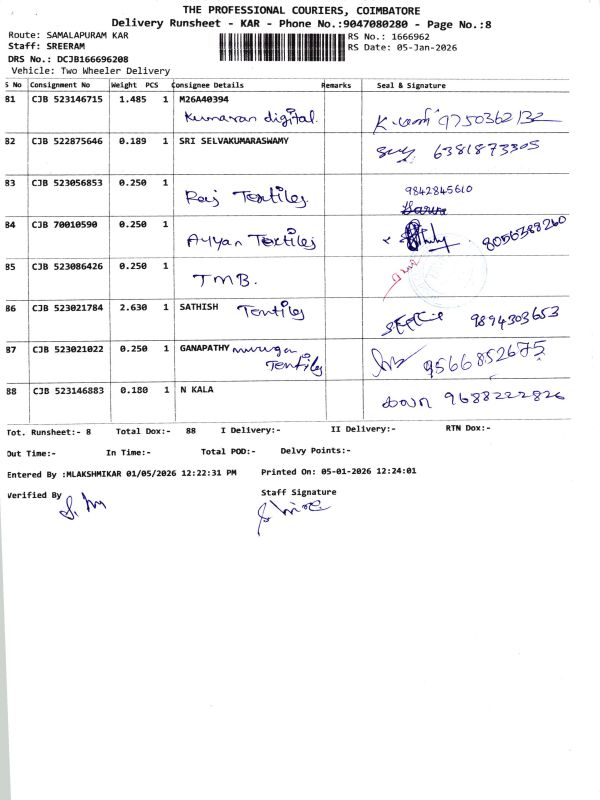 THE PROFESSIONAL COURIERS, COIMBATORE
Delivery Runsheet - KAR - Phone No.:9047080280 - Page No.:8
Route: SAMALAPURAM KAR
RS No.: 1666962
Staff: SREERAM
RS Date: 05-Jan-2026
DRS No.: DCJB166696208
Vehicle: Two Wheeler Delivery
S No Consignment No Weight PCS Consignee Details Remarks Seal & Signature
81 CJB 523146715 1.485 1 M26A40394
Kumaran digital. 9750362132
82 CJB 522875646 0.189 1 SRI SELVAKUMARASWAMY
6381873305
83 CJB 523056853 0.250 1
Raj Textiles 9842845610
84 CJB 70010590 0.250 1
Ayyan Textiles 8056388260
85 CJB 523086426 0.250 1
TMB.
86 CJB 523021784 2.630 1 SATHISH Textiles
9894303653
87 CJB 523021022 0.250 1 GANAPATHY muruga
Textiles 9566852675
88 CJB 523146883 0.180 1 N KALA
9688222826
Tot. Runsheet:- 8 Total Dox:- 88 I Delivery:- II Delivery:- RTN Dox:-
Out Time:- In Time:- Total POD:- Delvy Points:-
Entered By :MLAKSHMIKAR 01/05/2026 12:22:31 PM Printed On: 05-01-2026 12:24:01
Verified By
Staff Signature